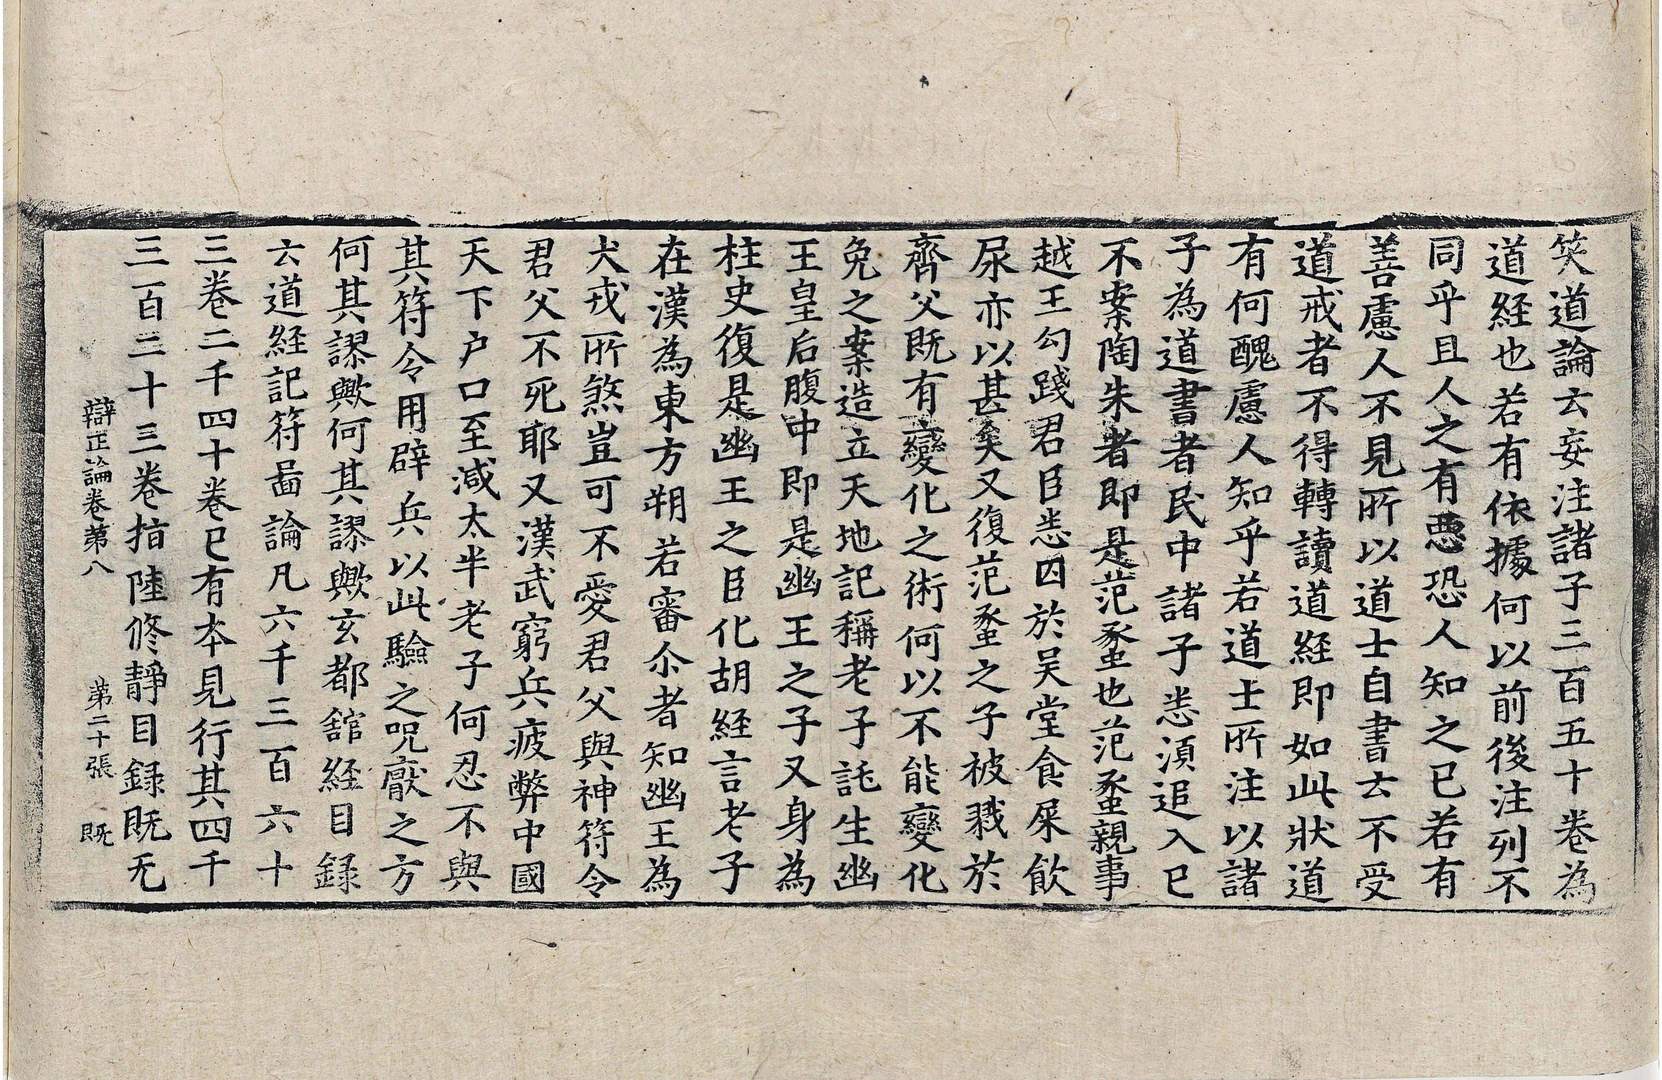 笑道論云妄注諸子三百五十卷為
道経也若有依據何以前後注列不
同乎且人之有惡恐人知之已若有
善慮人不見所以道士自書云不受
道戒者不得轉讀道経即如此狀道
有何醜慮人知乎若道士所注以諸
子為道書者民中諸子悉湏追入已
不案陶朱者即是范蠡也范蠡親事
越王勾踐君臣悉囚於吳堂食屎飲
尿亦以甚矣又復范蠡之子被戮於
齊父既有變化之術何以不能變化
免之案造立天地記稱老子託生幽
王皇后腹中即是幽王之子又身為
柱史復是幽王之臣化胡経言老子
在漢為東方朔若審尒者知幽王為
犬戎所煞豈可不愛君父與神符令
君父不死耶又漢武窮兵疲弊中國
天下户口至減太半老子何忍不與
其符令用辟兵以此驗之呪厭之方
何其謬歟何其謬歟玄都舘経目録
云道経記符啚論凡六千三百六十
三卷二千四十卷已有夲見行其四千
三百二十三卷指陸修靜目録既无
辯正論卷第八 第二十張 既